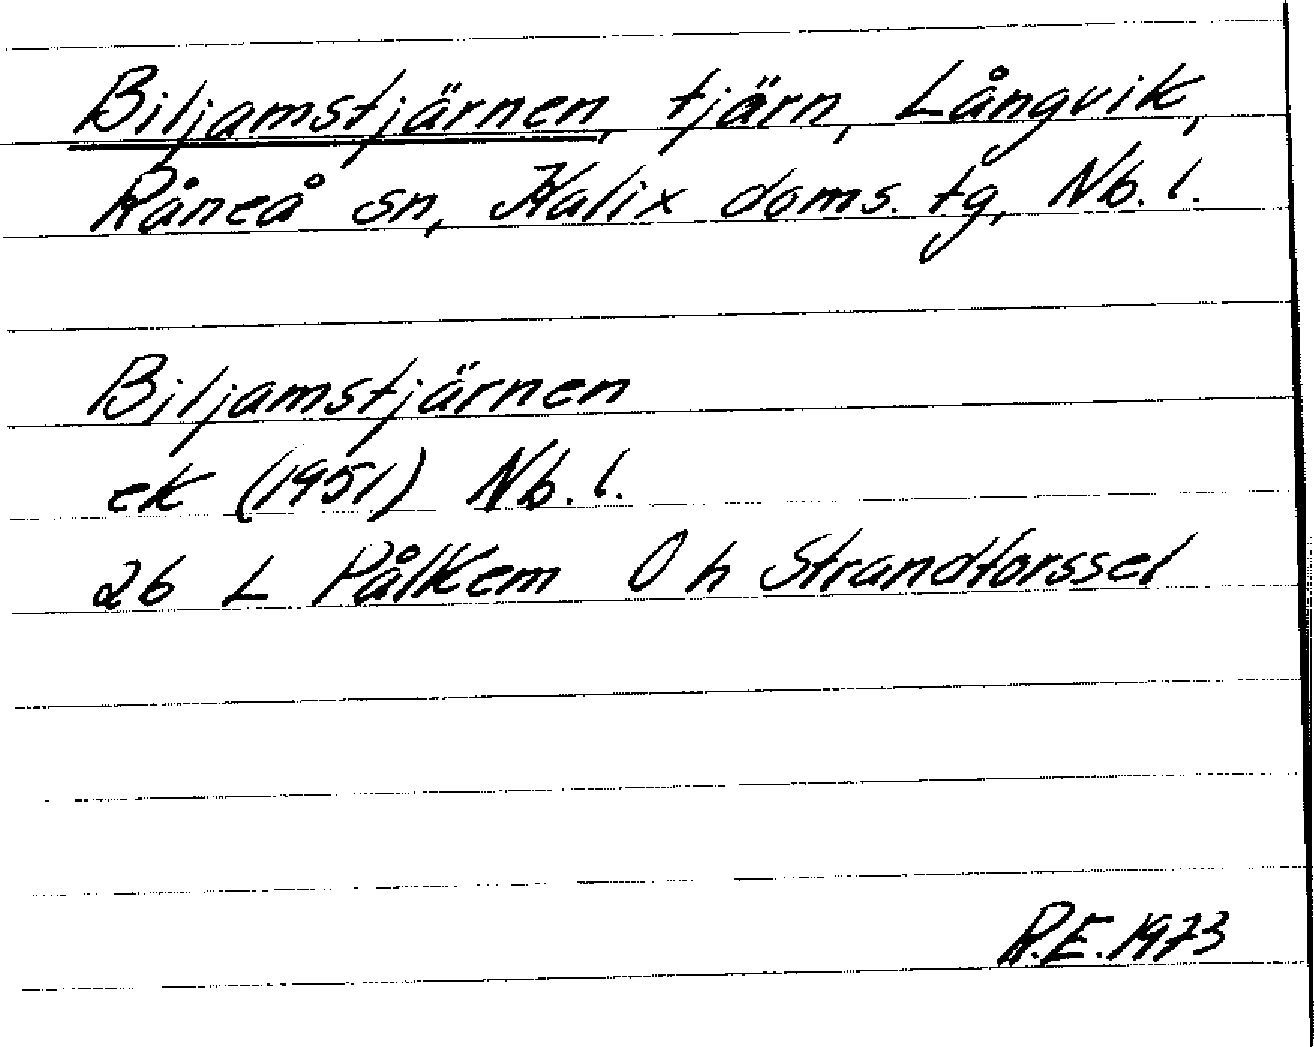 Biljamstjärnen, tjärn, Långvik,
Råneå sn, Kalix doms. tg, Nb. l.
Biljamstjärnen
ek (1951) Nb. l.
26 L Pålkem O h Strandforssel
R.E. 1973